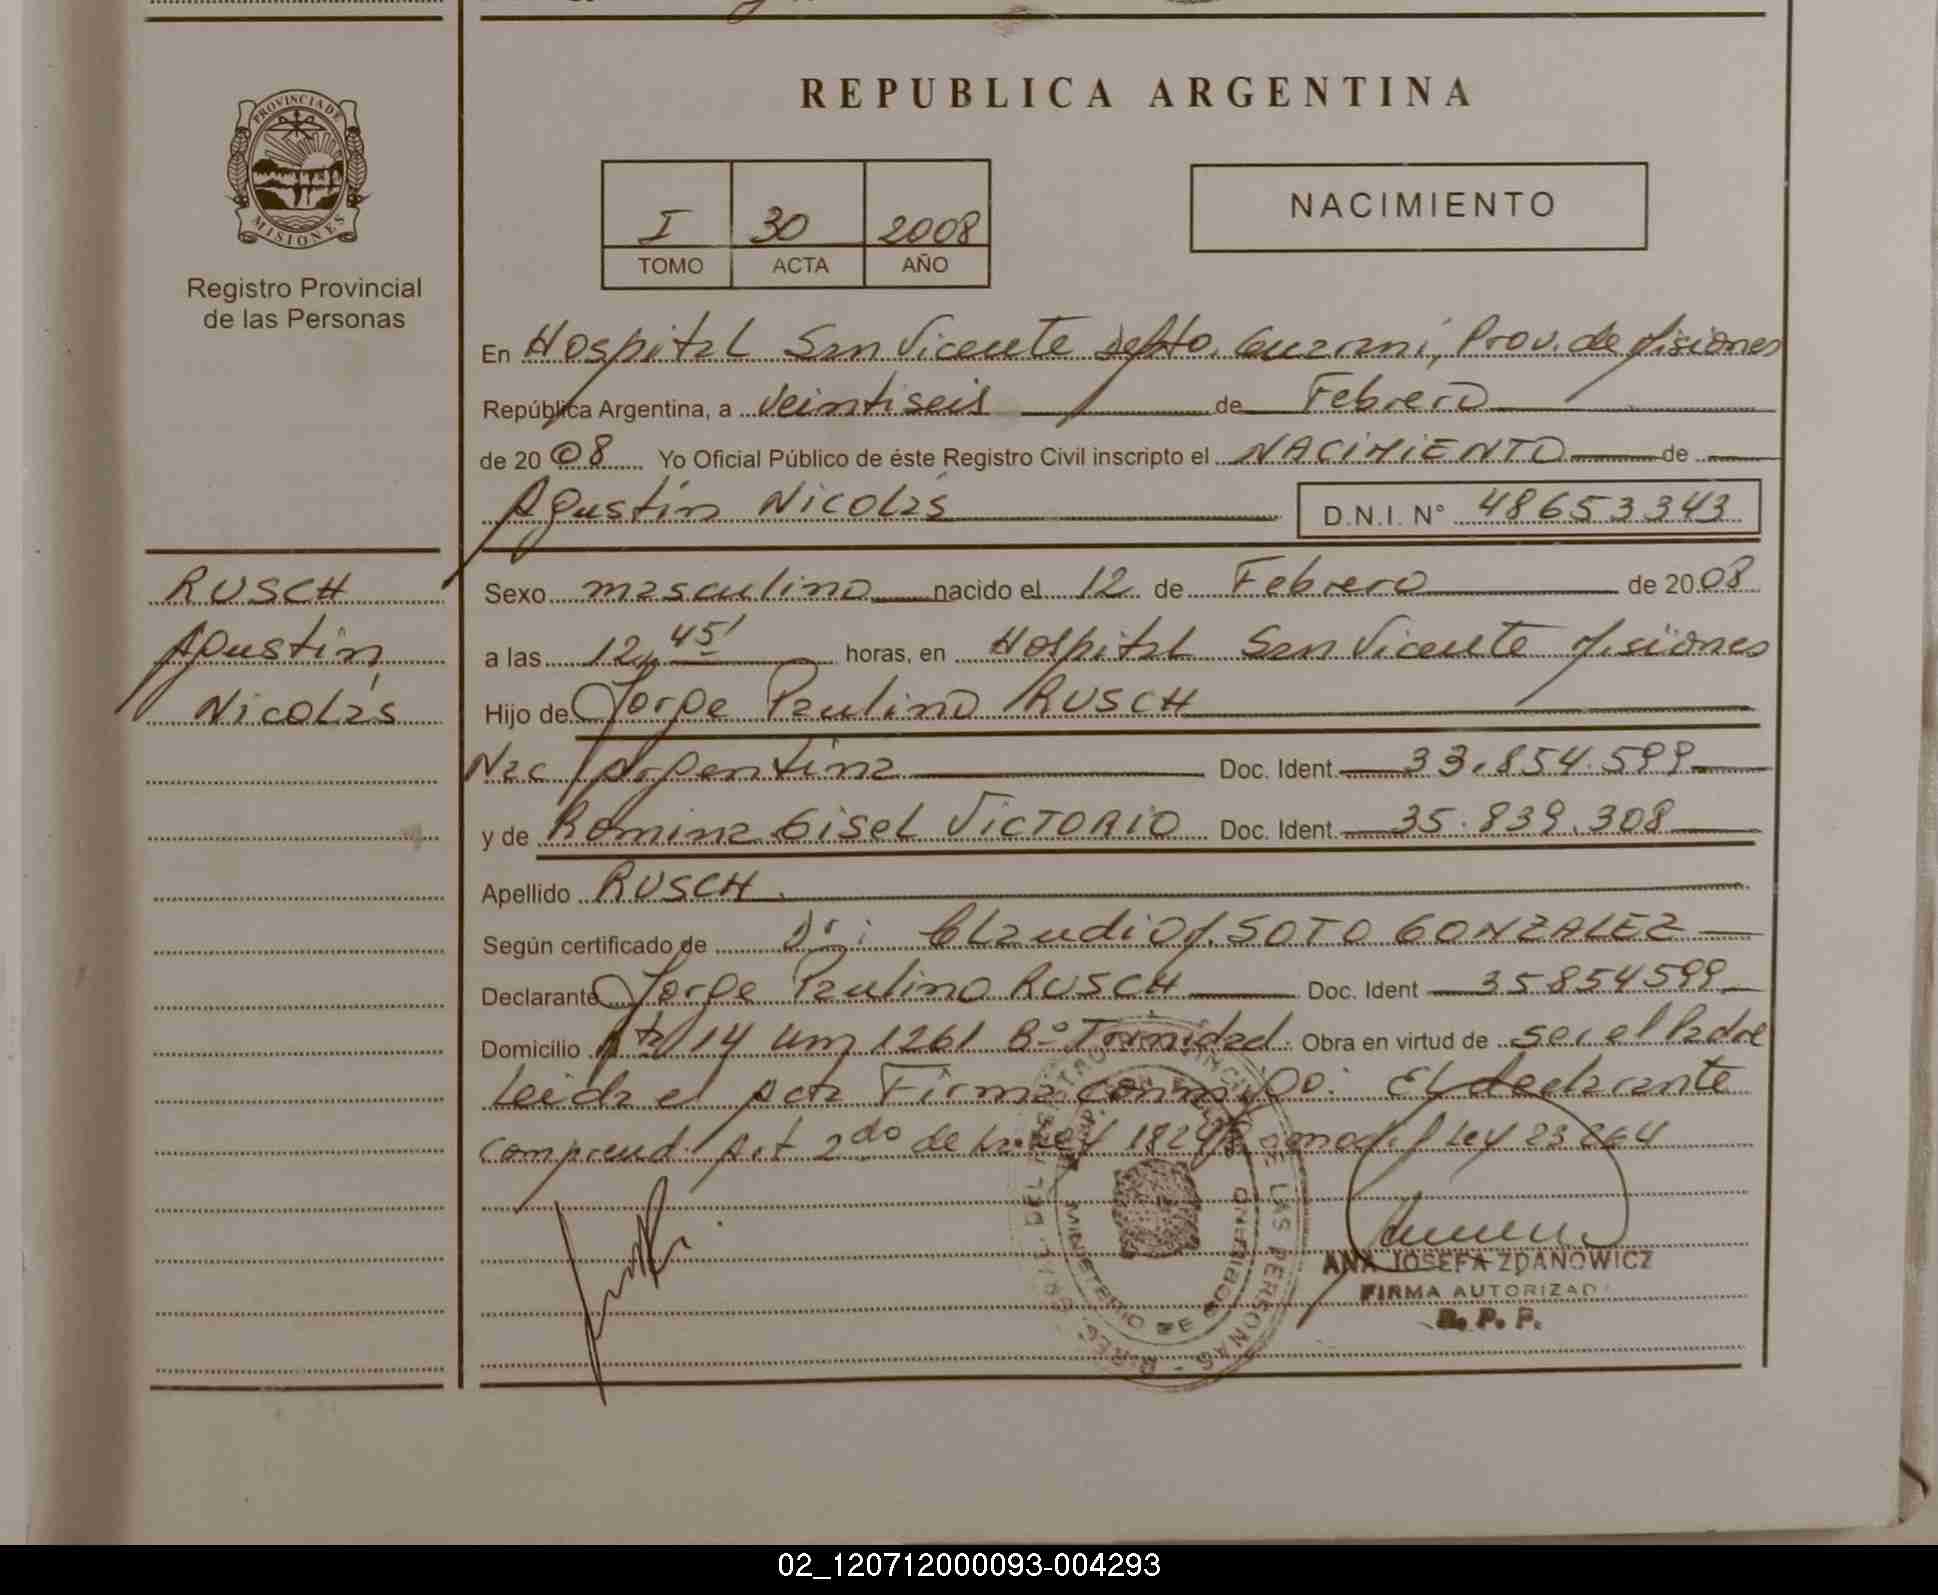 REPUBLICA ARGENTINA
PROVINCIA DE
MISIONES
Registro Provincial
de las Personas
I 30 2008
TOMO ACTA AÑO
NACIMIENTO
En Hospital San Vicente Depto. Guaraní, Prov. de Misiones
República Argentina, a veintiseis de Febrero
de 20 08 Yo Oficial Público de éste Registro Civil inscripto el NACIMIENTO de
Agustín Nicolás D.N.I. N° 48653343
RUSCH
Agustín
Nicolás
Sexo masculino nacido el 12 de Febrero de 20 08
a las 12,, 45' horas, en Hospital San Vicente Misiones
Hijo de Jorge Paulino RUSCH
Nac Argentina Doc. Ident 33.854.599
y de Romina Gisel VICTORIO Doc. Ident. 35.839.308
Apellido RUSCH.
Según certificado de Dr: Claudio M. SOTO GONZALEZ
Declarante Jorge Paulino RUSCH Doc. Ident 35854599
Domicilio Rta 14 1261 B° Trinidad. Obra en virtud de ser el Padre
Leida el Acta Firma conmigo: El declarante
comprend. Art 2do de la Ley 18248 modif Ley 23264
MINISTERIO DE GOBIERNO
LAS PERSONAS
ANA JOSEFA ZDANOWICZ
FIRMA AUTORIZADA
R. P. P.
02_120712000093-004293